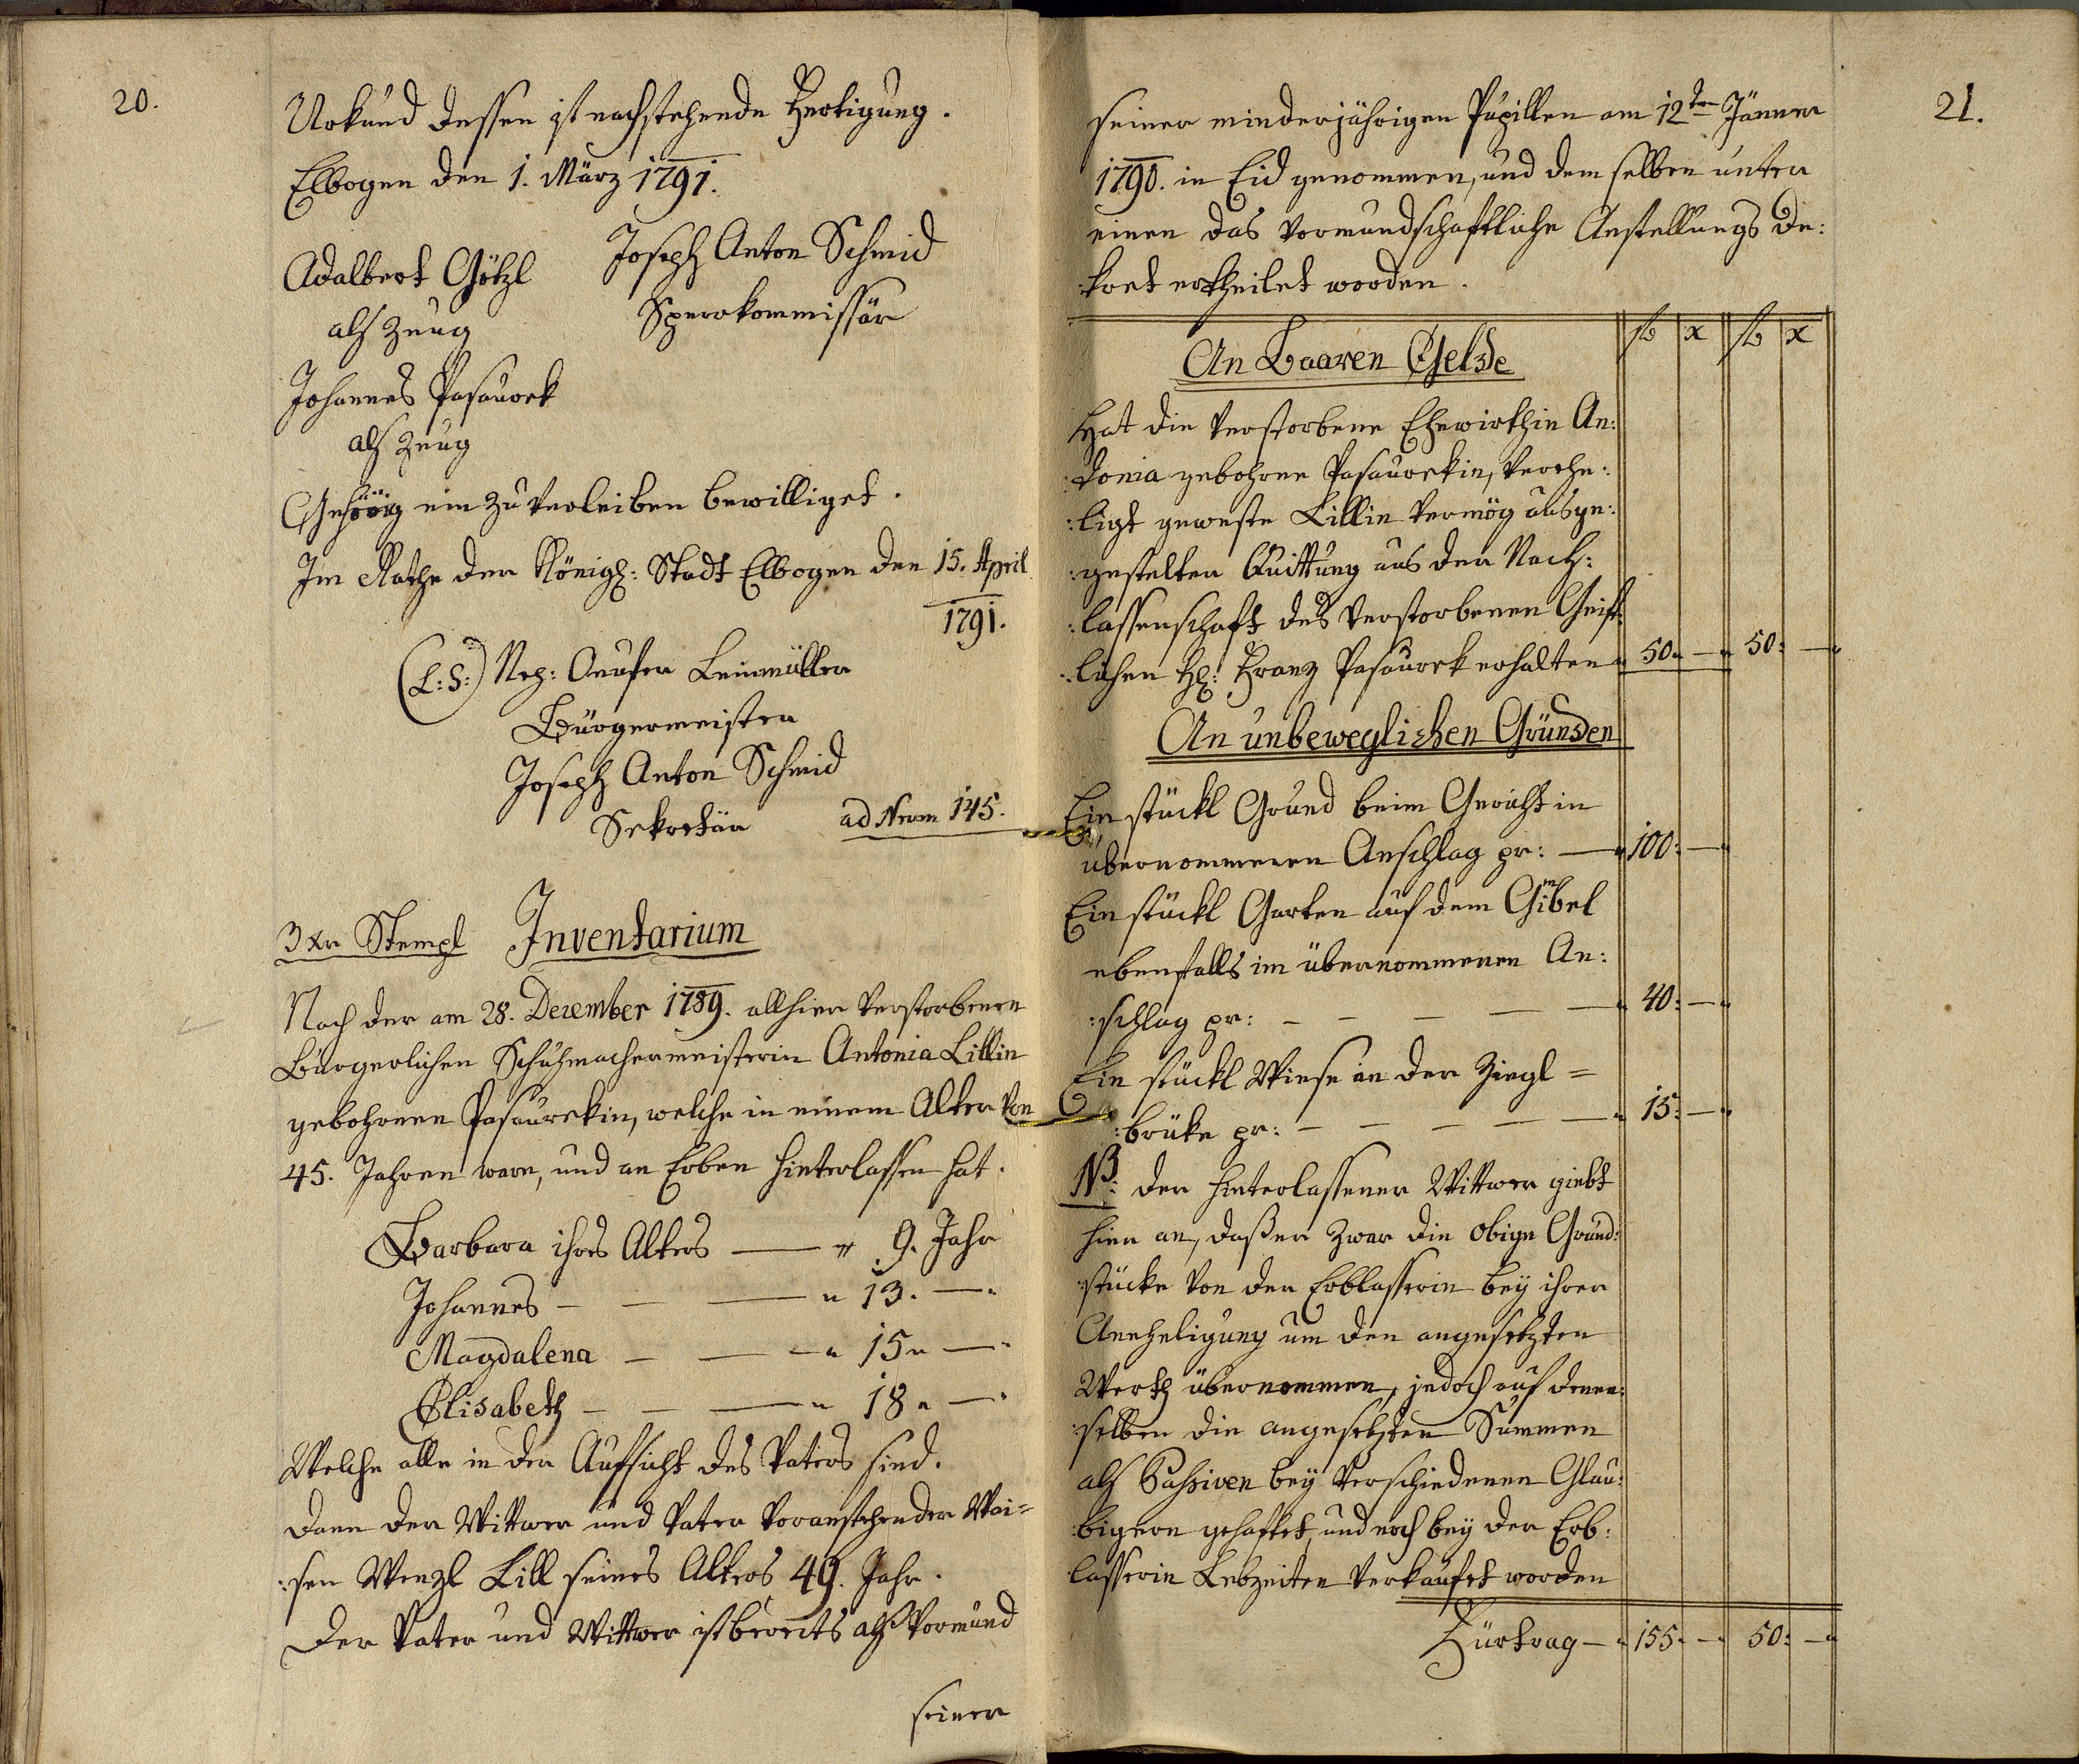 20.
Urkund dessen ist nachstehende Fertigung.
Elbogen den 1. März 1791.
Joseph Anton Schmid
Adalbert Götzl
Sperrkommissär
als Zeug
Johannes Pasaurek
als Zeug
Gehörig ein zu verleiben bewilliget.
Im Rathe der Königl: Stadt Elbogen den 15. April
1791.
(L:S:) Nep: Leinmüller
Bürgermeister
Joseph Anton Schmid
Sekretär ad Nrum 145.
3 xr Stempl Inventarium
Nach der am 28. Dezember 1789. allhier verstorbenen
Bürgerlichen Schuhmachermeisterin Antonia Lillin
gebohrnen Pasaurekin, welche in einem Alter von
45. Jahren ware, und an Erben hinterlassen hat.
Barbara ihres Alters — " 9. Jahr
Johannes — — — " 13. —"
Magdalena — — — " 15 " —"
Elisabeth — — — " 18 " —"
Welche alle in der Aufsicht des Vaters sind.
Dann der Wittwer und Vater voranstehender Wai=
:sen Wenzl Lill seines Alters 49. Jahr.
Der Vater und Wittwer ist bereits als Vormund
seiner
21.
seiner minderjährigen Pupillen am 12ten Jänner
1790. in Eid genommen, und dem selben unter
einen das vormundschaftliche Anstellungs De:
:kret ertheilet worden.
fl x fl x
An Baaren Gelde
Hat die verstorbene Ehewirthin An:
:tonia gebohrne Pasaurekin, verehe:
:ligt geweste Lillin vermög ausge:
:gestelter Quittung aus der Nach:
:lassenschaft des verstorbenen Geist:
:lichen H: Franz Pasaurek erhalten " 50 " — " 50: — "
An unbeweglichen Gründen
Ein stückl Grund beim Gericht in
übernommenen Anschlag pr: — " 100: — "
Ein stückl Garten auf dem Gibel
ebenfalls im übernommenen An:
:schlag pr: — — — — — " 40: — "
Ein stückl Wiese an der Ziegl=
:brüke pr: — — — — — " 15: — "
NB: der hinterlassener Wittwer giebt
hier an, daßer zwar die obige Grund:
:stücke von der Erblasserin bey ihrer
Anehligung um den angesetzten
Werth übernommen, jedoch auf denen:
:selben die angesetzten Summen
als Passiven bey verschiedenen Glau:
:bigern gehaftet, und noch bey der Erb:
:lasserin Lebzeiten verkaufet worden
Fürtrag — " 155 " — " 50: — "